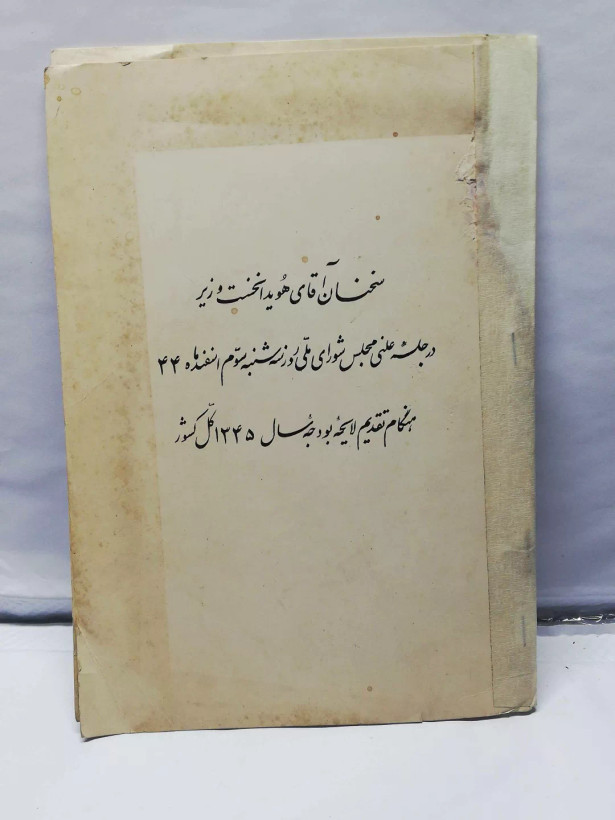 سخنان آقای هُویدا نخست وزیر
در جلسهٔ علنی مجلس شورای ملّی روز سه شنبه سوّم اسفندماه ۴۴
هنگام تقدیم لایحهٔ بودجهٔ سال ۱۳۴۵ کلّ کشور